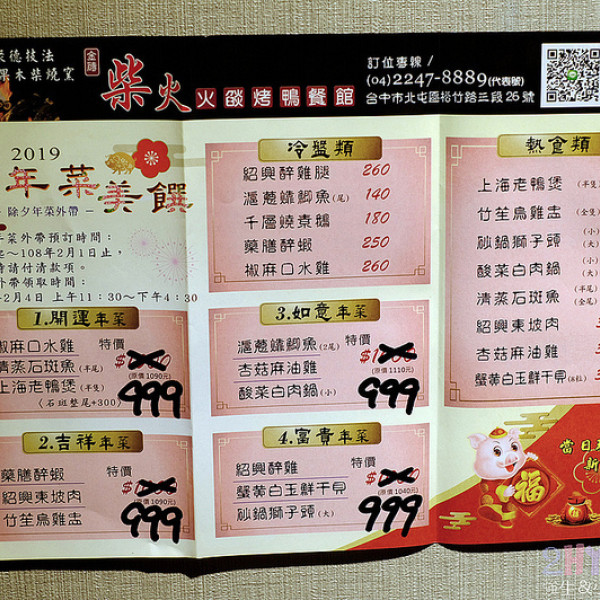 德技法
果木柴燒窯
金磚
柴火火燄烤鴨餐館
訂位專線/
(04)2247-8889(代表號)
台中市北屯區裕竹路三段26號
2019
年菜美饌
除夕年菜外帶
菜外帶預訂時間：
~108年2月1日止，
請付清款項。
外帶領取時間：
2月4日 上午11：30~下午4：30
1.開運年菜
椒麻口水雞
清蒸石斑魚(半尾)
上海老鴨煲(半隻)
〈石斑整尾+300〉
特價
(原價1090元)
499
2.吉祥年菜
藥膳醉蝦
紹興東坡肉
竹笙烏雞盅
特價
(原價1090元)
999
冷盤類
紹興醉雞腿 260
滬蔥㸆鯽魚(尾) 140
千層燒素鵝 180
藥膳醉蝦 250
椒麻口水雞 260
3.如意年菜
滬蔥㸆鯽魚(2尾)
杏菇麻油雞
酸菜白肉鍋(小)
特價
(原價1110元)
999
4.富貴年菜
紹興醉雞
蟹黃白玉鮮干貝
砂鍋獅子頭(大)
特價
(原價1040元)
999
熱食類
上海老鴨煲(半隻)
竹笙烏雞盅(全隻)
砂鍋獅子頭(小)
(大)
酸菜白肉鍋(小)
(大)
清蒸石斑魚(半尾)
(全尾)
紹興東坡肉
杏菇麻油雞
蟹黃白玉鮮干貝(8粒)
福
當日
新